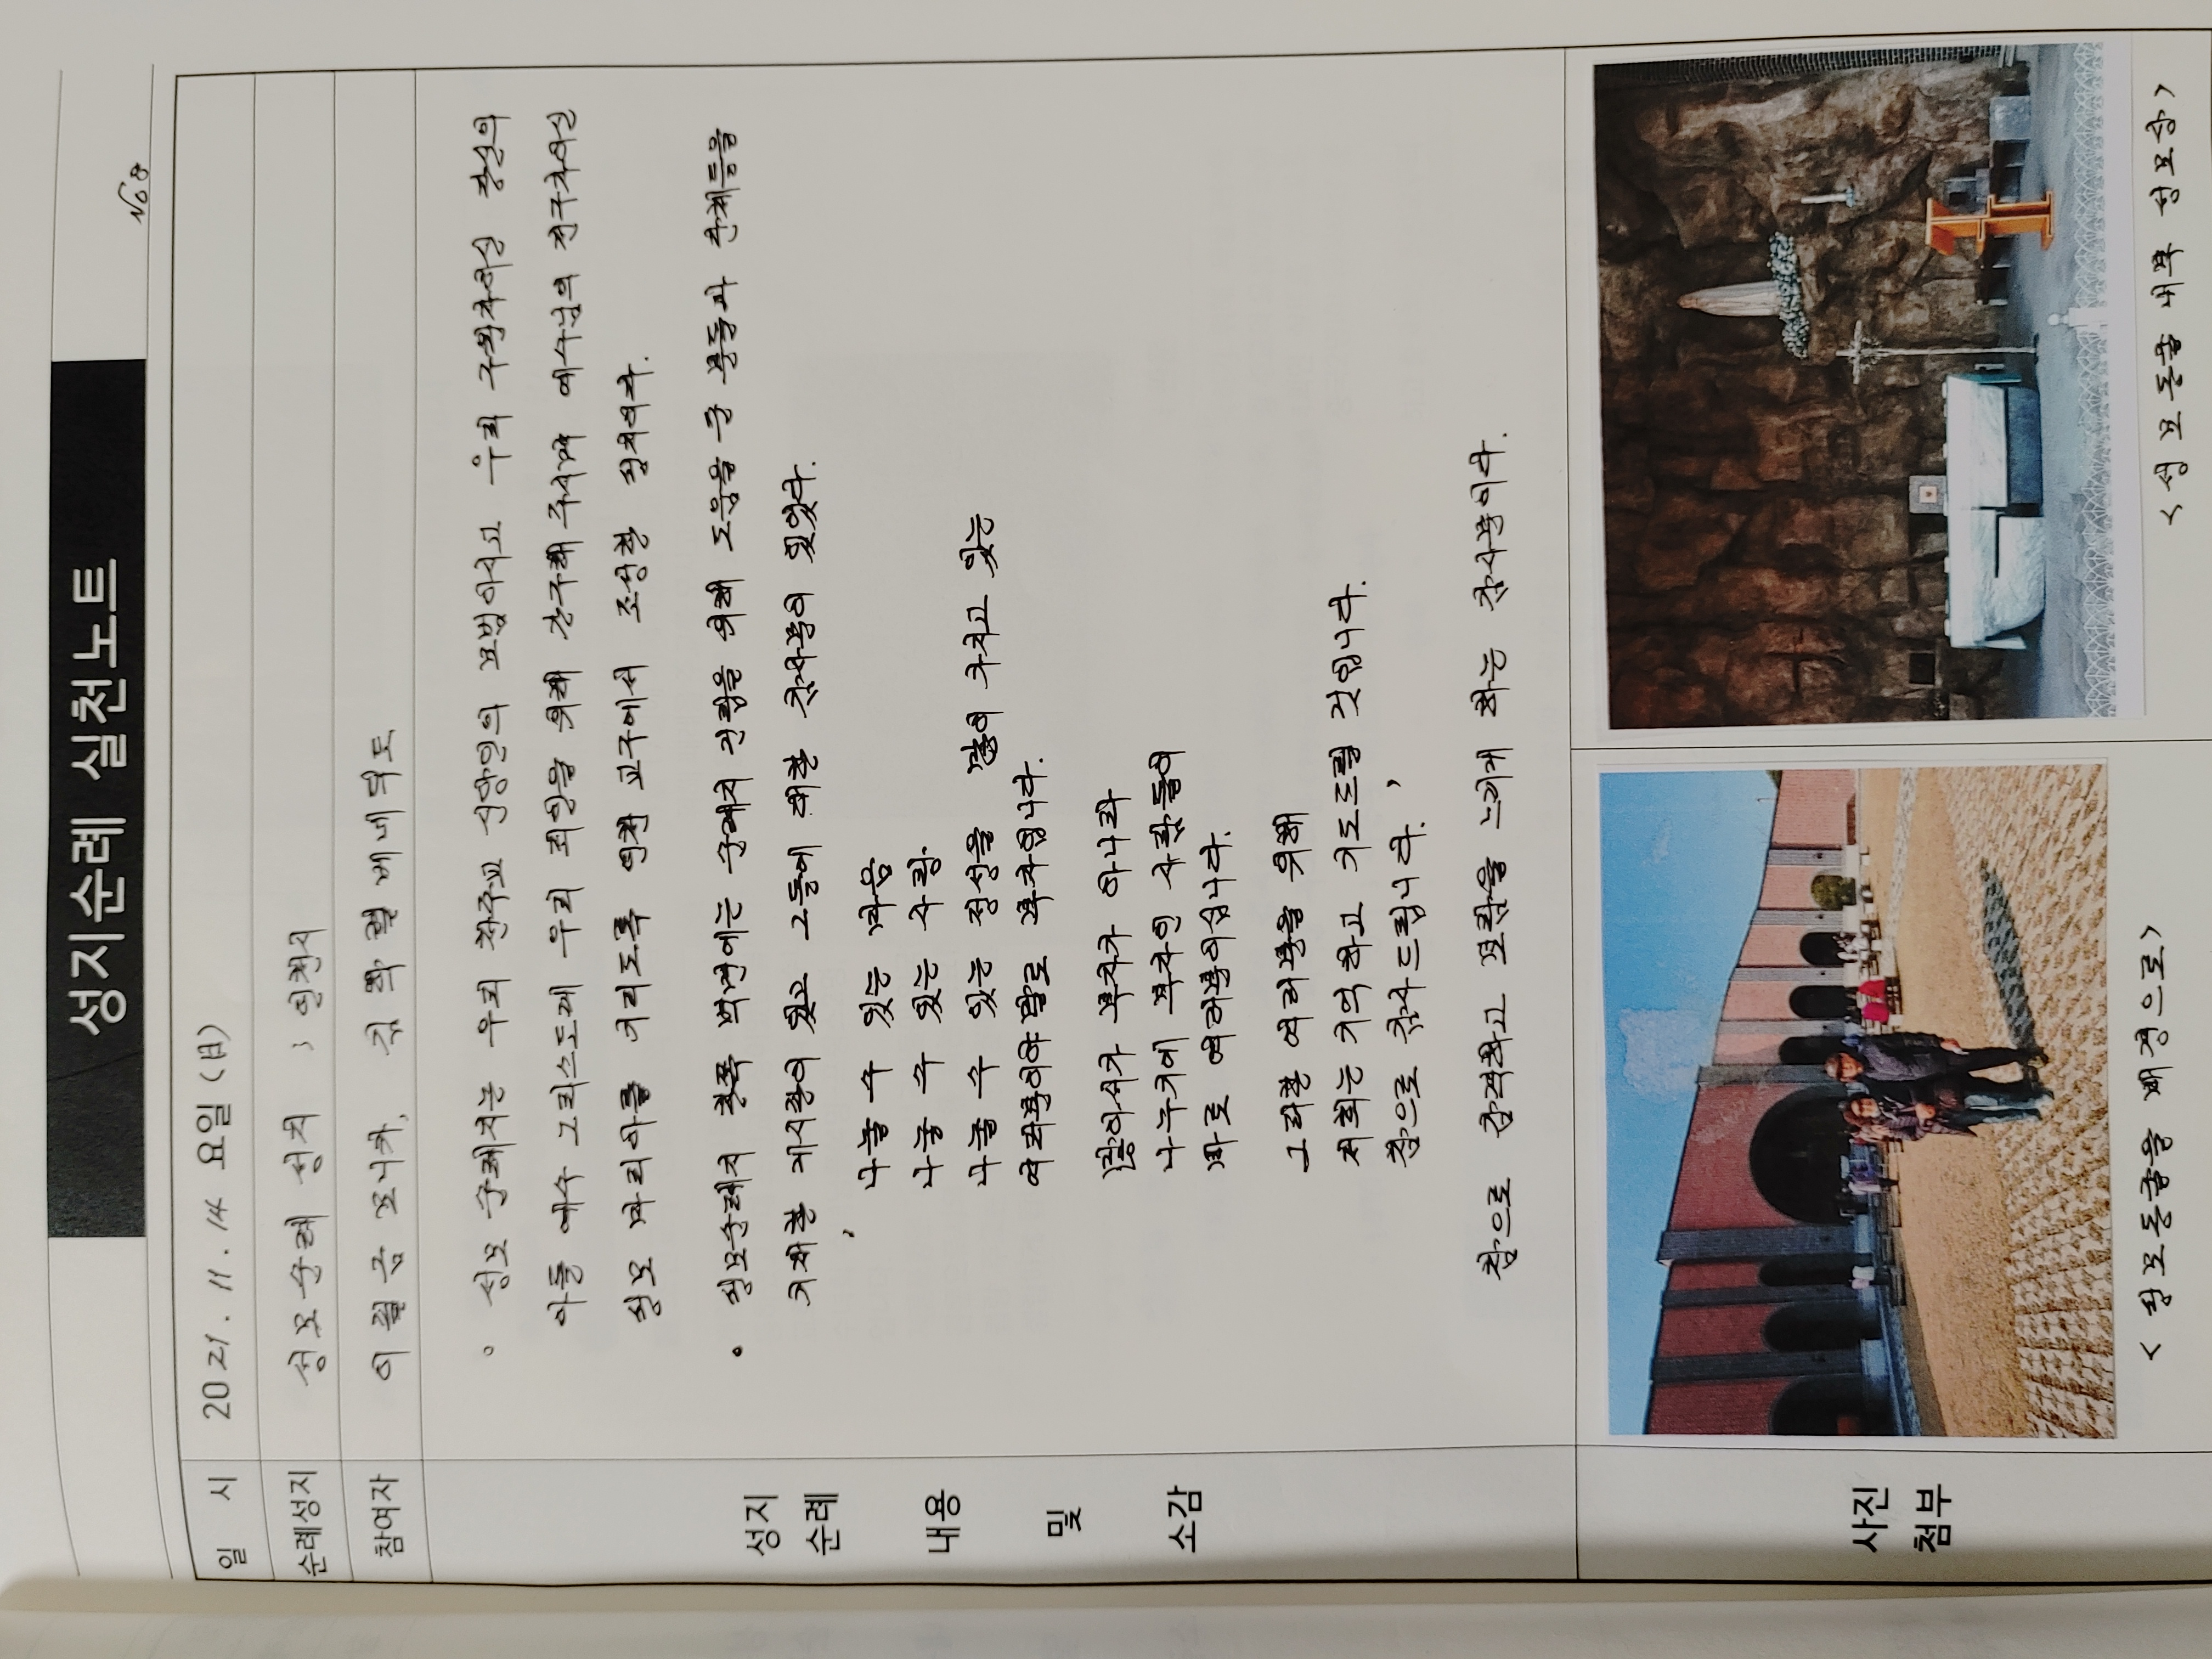 성지순례 실천노트
No 8
일 시
2021. 11. 14 요일 (日)
순례성지
성모순례 성지 ; 인천시
참여자
이필금 모니카, 김학렬 베네딕도
성지
순례
내용
및
소감
◦ 성모 순례지는 우리 천주교 신앙인의 모범이시고 우리 구원자이신 당신의
아들 예수 그리스도께 우리 죄인을 위해 간구해 주시며 예수님의 전구자이신
성모 마리아를 기리도록 인천 교구에서 조성한 성지이다.
◦ 성모순례지 한쪽 벽면에는 순례지 건립을 위해 도움을 준 분들과 단체들을
기재한 게시판이 있고 그들에 대한 감사문이 있었다.
' 나눌 수 있는 마음
나눌 수 있는 사랑
나눌 수 있는 정성을 많이 가지고 있는
여러분이야 말로 부자입니다.
많아서가 부자가 아니라
나누기에 부자인 사람들이
바로 여러분이십니다.
그러한 여러분을 위해
저희는 기억하고 기도드릴 것입니다.
참으로 감사드립니다. '
참으로 감격하고 보람을 느끼게 하는 감사문이다.
사진
첨부
< 성모동굴을 배경으로 >
< 성모동굴 내부 성모상 >